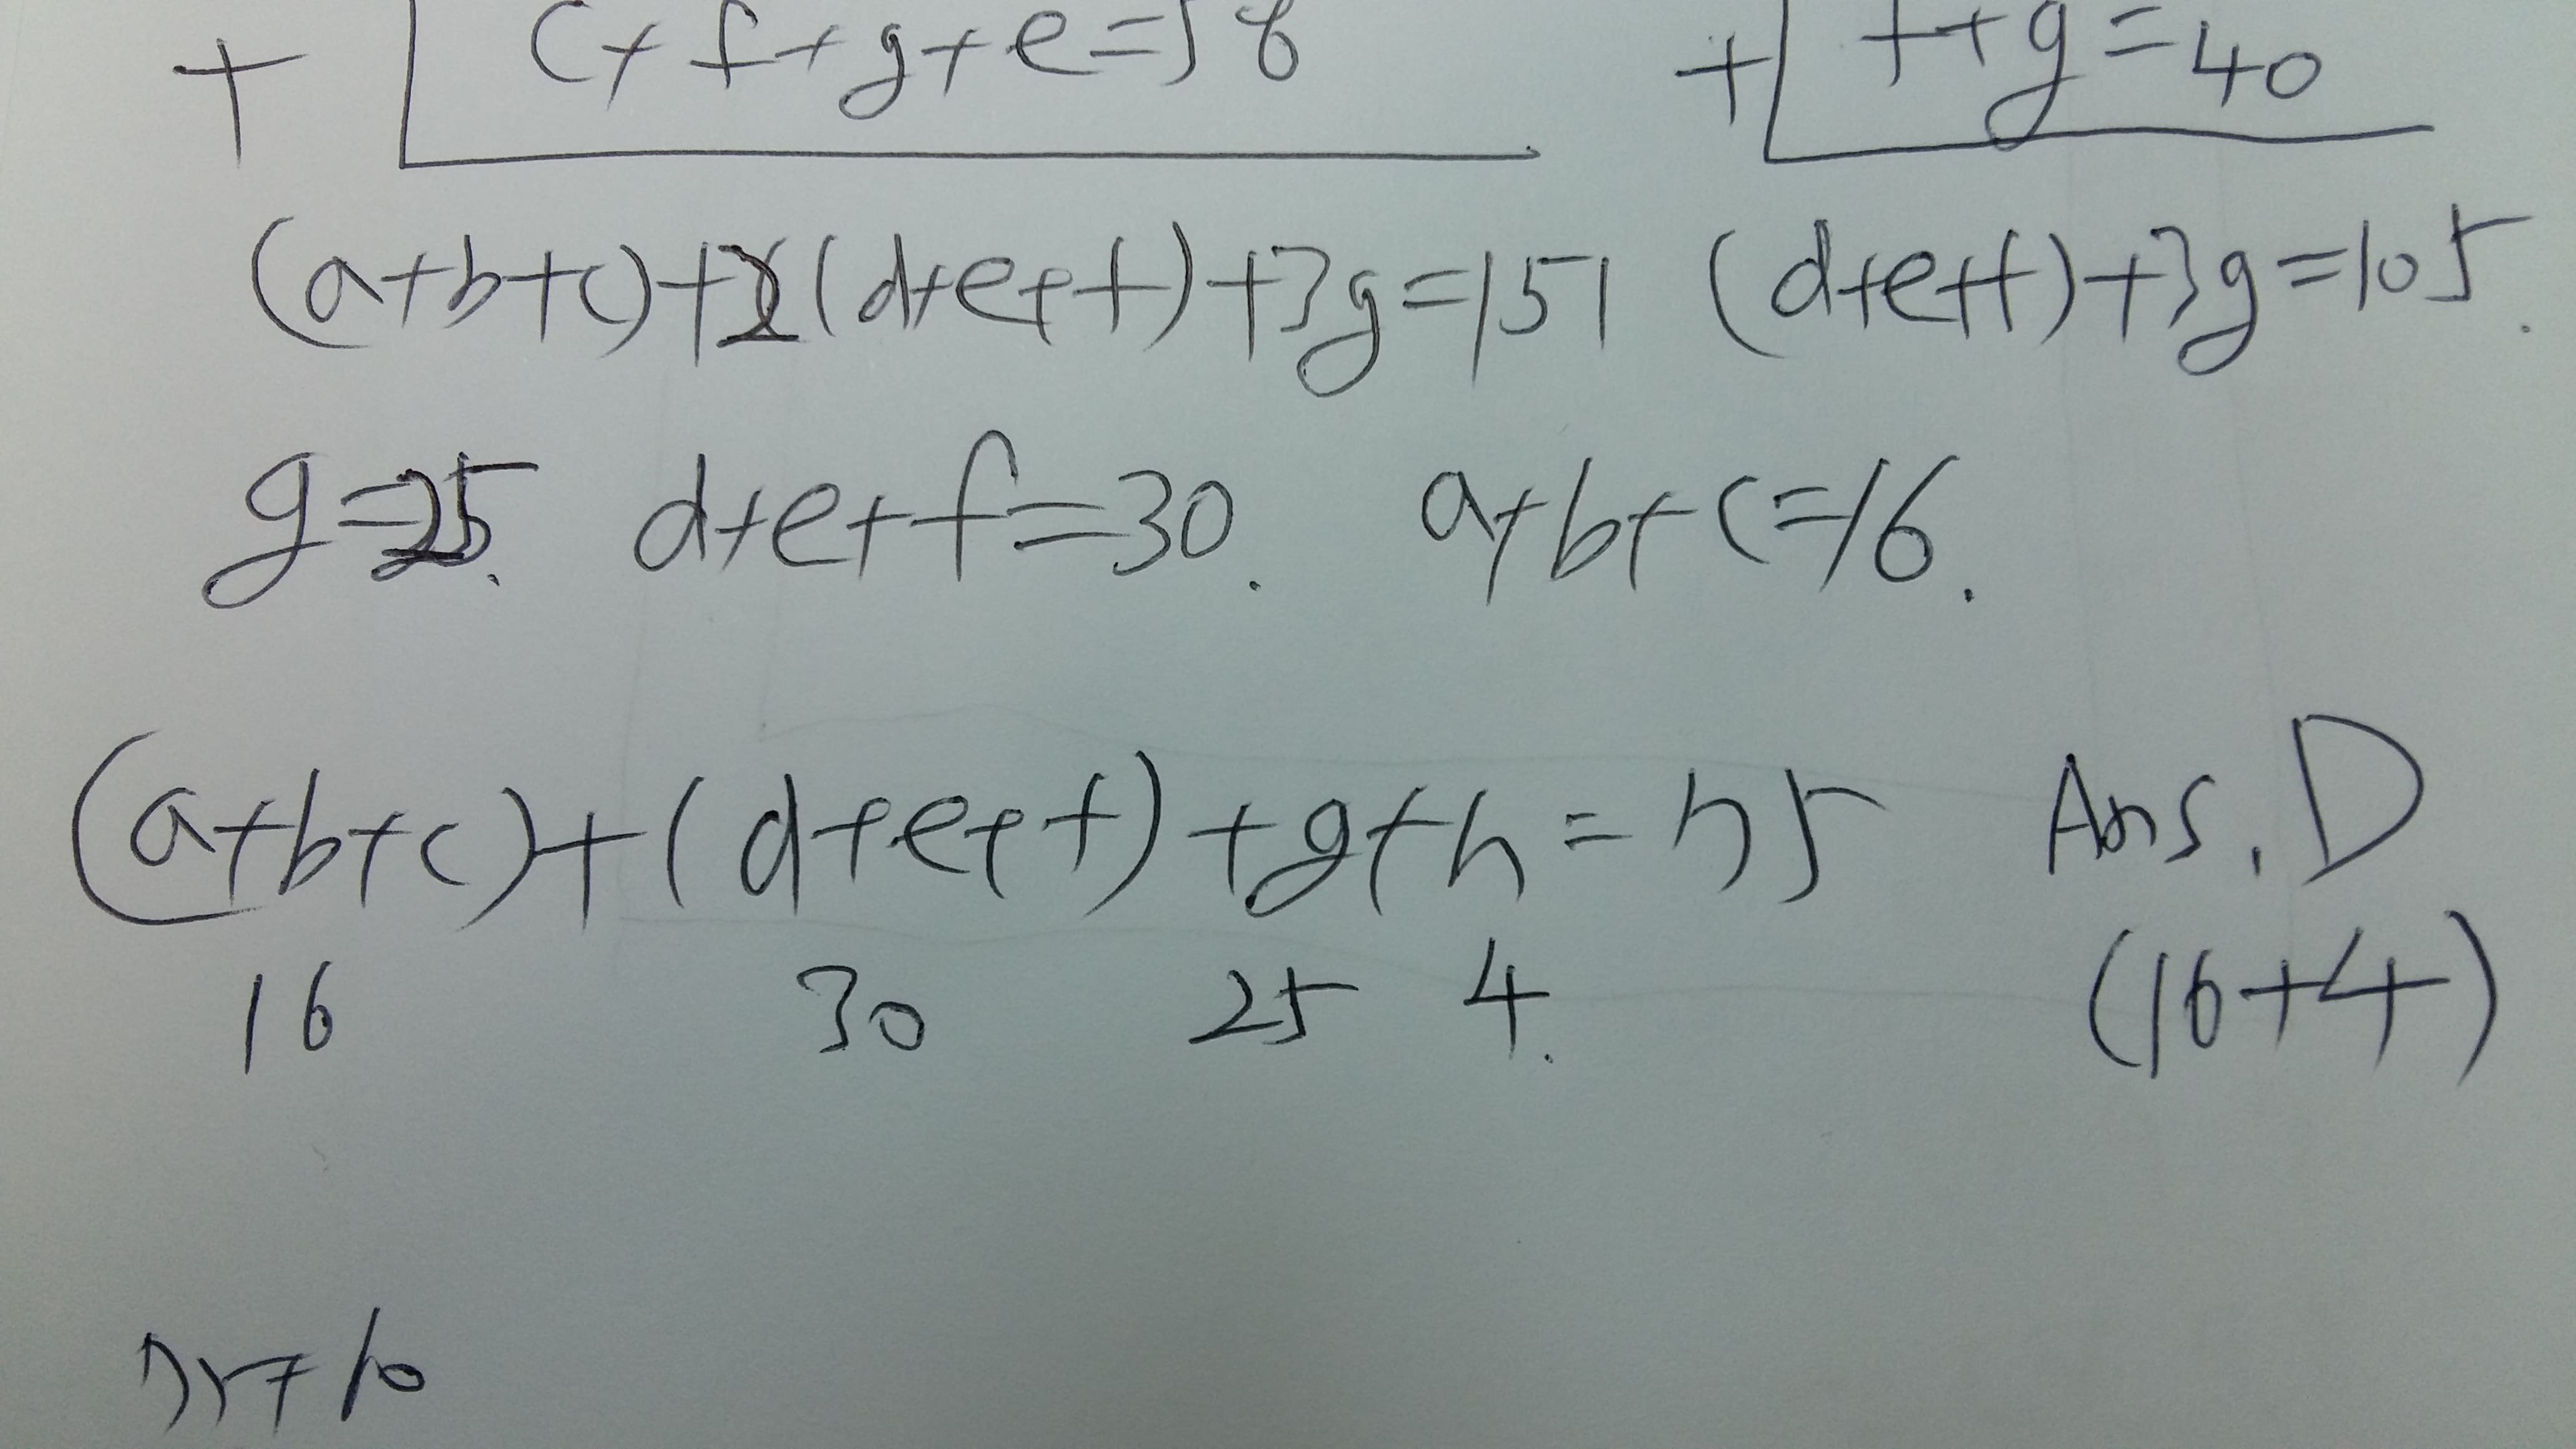 + c+f+g+e=58 + f+g=40
(a+b+c)+2(d+e+f)+3g=151 (d+e+f)+3g=105.
g=25. d+e+f=30. a+b+c=16.
(a+b+c)+(d+e+f)+g+h=75 Ans. D
16 30 25 4. (16+4)